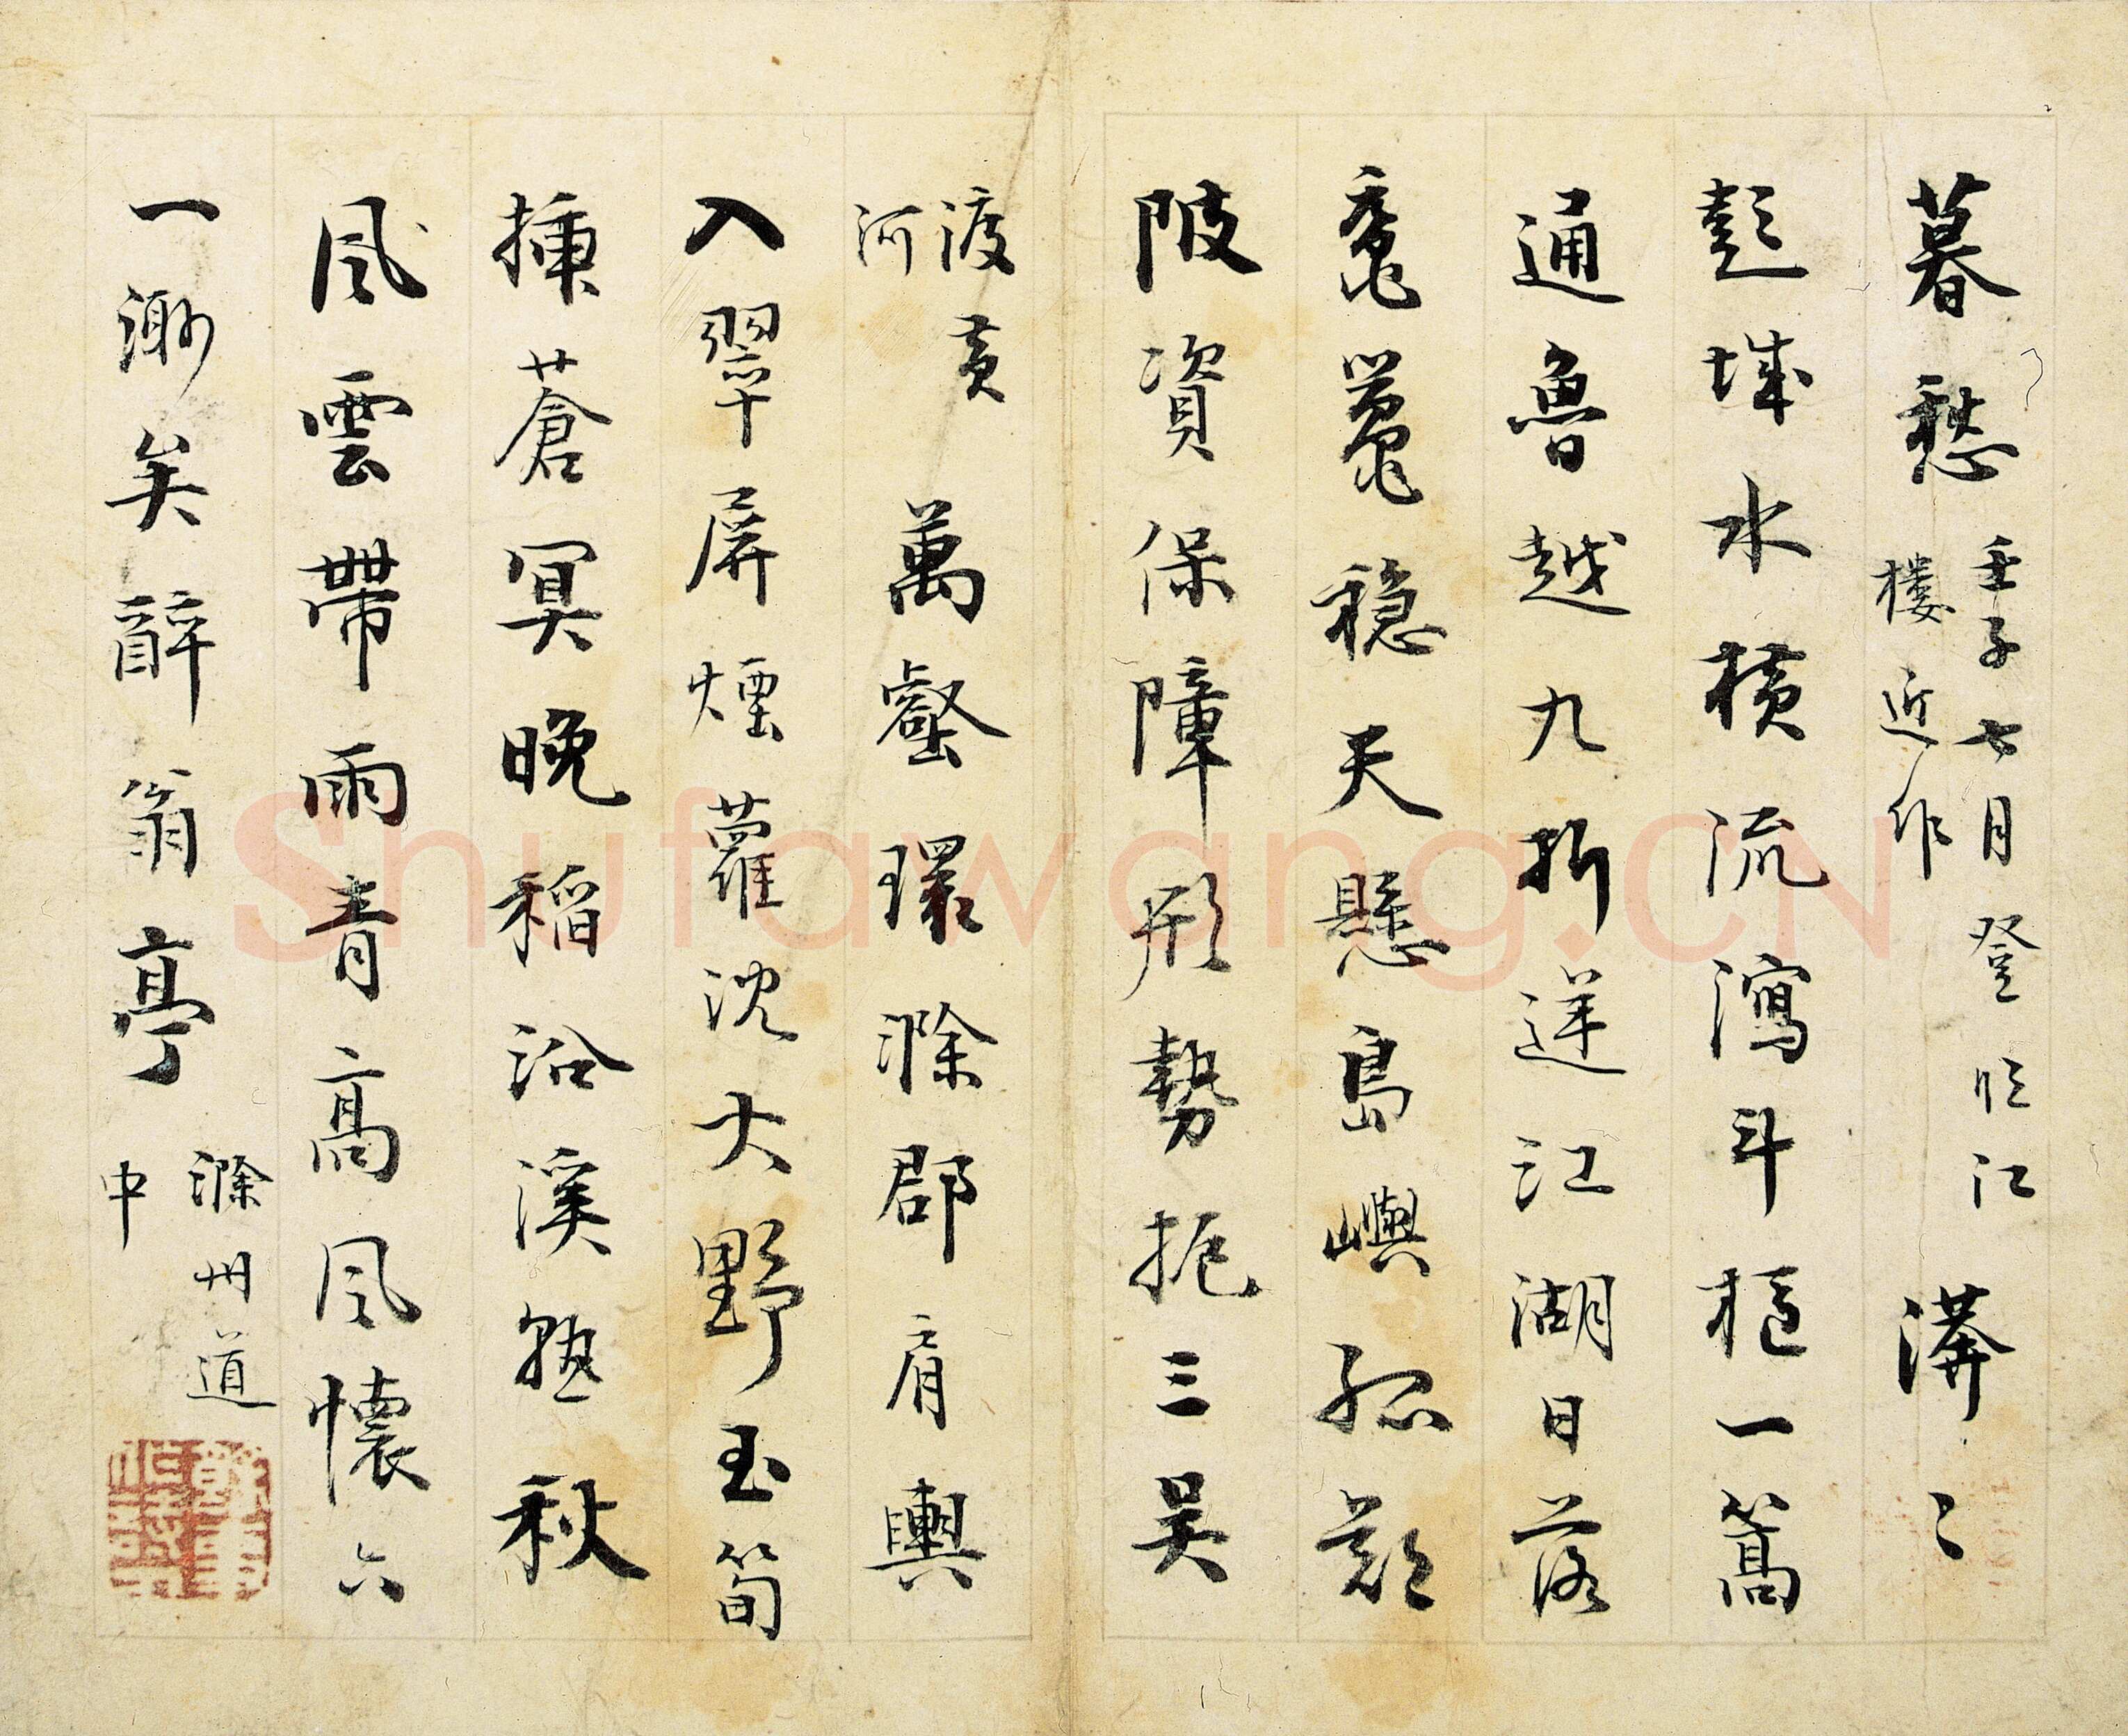 暮愁
壬子七月登臨江
樓近作
漭〻
彭城水橫流瀉斗樞一篙
通魯越九折迸江湖日落
黿鼉穩天懸島嶼孤
陂資保障形勢扼三吳
渡黃
河
萬壑環滁郡肩輿
入翠屏煙蘿沈大野玉筍
揷蒼冥晚稻沿溪熟秋
風雲帶雨青高風懷六
一渺矣醉翁亭
滁州道
中
Shufawang.CN